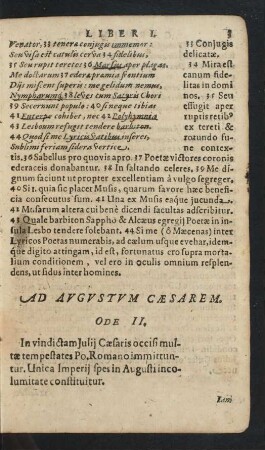 LIBER I. 3
Venator, 33 tenera conjugis immemor:
Seu visa est catulis cerva 34 fidelibus,
35 Seu rupit teretes 36 Marsus aper plagas.
Me doctarum 37 ederæ præmia frontium
Dijs miscent superis: me gelidum nemus,
Nympharumq; 38 leves cum Satyris Chori
39 Secernunt populo: 40 si neque tibias
41 Euterpe cohibet, nec 42 Polyhymnia
43 Lesboum refugit tendere barbiton.
44 Quod si me Lyricis Vatibus inseres,
Sublimi feriam sidera Vertice.
33 Conjugis
delicatæ.
34 Mira est
canum fide-
litas in domi
nos. 35 Seu
effugit aper
ruptis retib'
ex tereti &
rotundo fu-
ne contex-
tis. 36 Sabellus pro quovis apro. 37 Poetæ victores coronis
ederaceis donabantur. 38 In saltando celeres. 39 Me di-
gnum faciunt ut propter excellentiam à vulgo segreger.
40 Si. quia sic placet Musis, quarum favore hæc benefi-
cia consecutus sum. 41 Una ex Musis eaque jucunda.
42 Musarum altera cui bene dicendi facultas adscribitur.
43 Quale barbiton Sappho & Alcæus egregij Poetæ in in-
sula Lesbo tendere solebant. 44 Si me (ô Mæcenas) inter
Lyricos Poetas numerabis, ad cælum usque evehar, idem-
que digito attingam, id est, fortunatus ero supra morta-
lium conditionem, vel ero in oculis omnium resplen-
dens, ut sidus inter homines.
AD AVGVSTVM CÆSAREM.
ODE II.
In vindictam Julij Cæsaris occisi mul-
tæ tempestates Po, Romano immittun-
tur. Unica Imperij spes in Augusti inco-
lumitate constituitur.
Iam